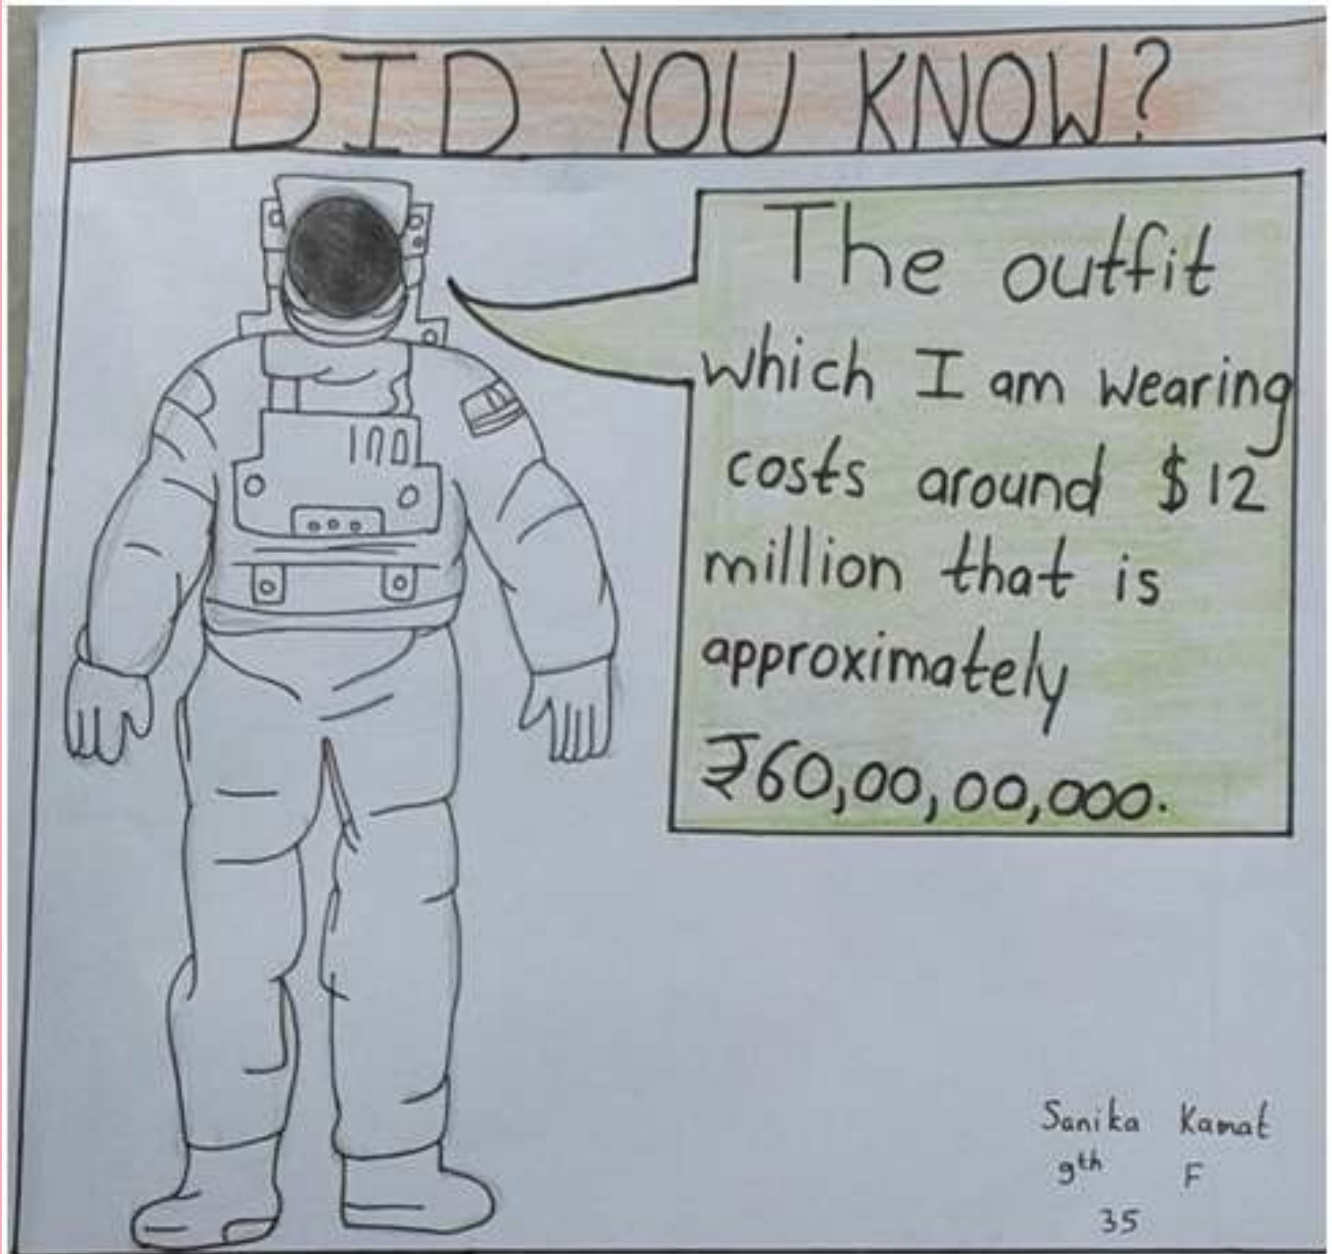 DID YOU KNOW?
The outfit
which I am wearing
costs around $12
million that is
approximately
₹60,00,00,000.
Sanika Kamat
9th F
35